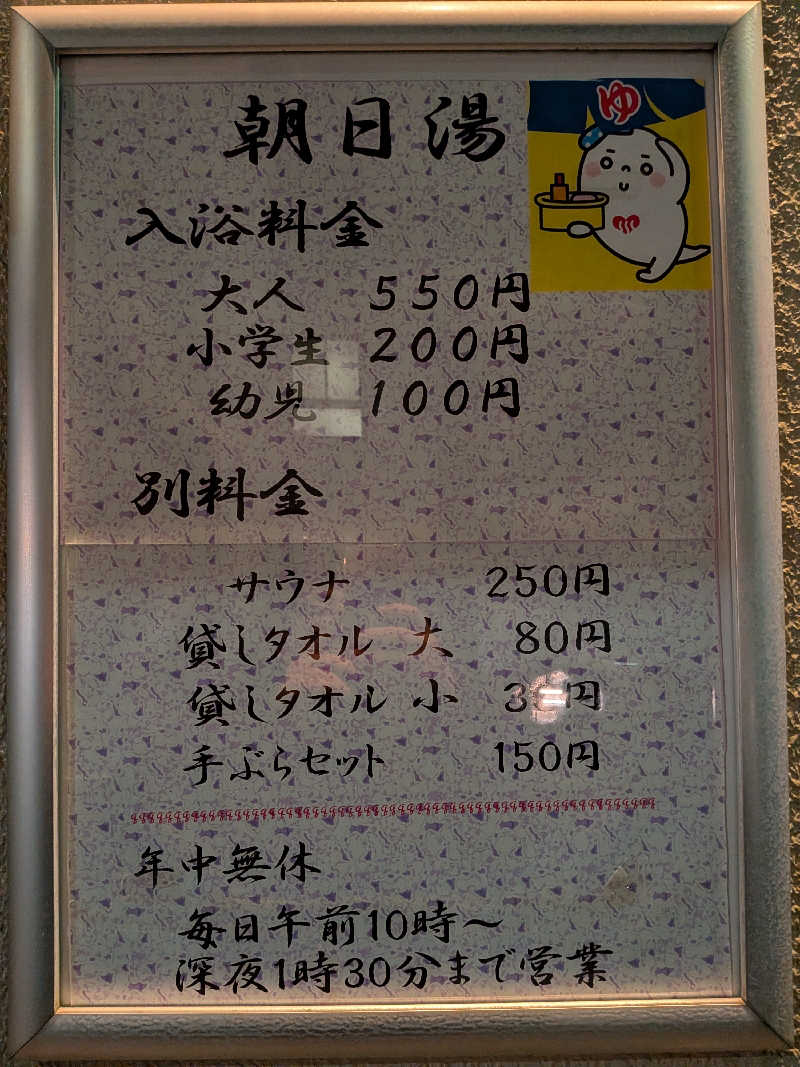 朝日湯
ゆ
入浴料金
大人 550円
小学生 200円
幼児 100円
別料金
サウナ 250円
貸しタオル 大 80円
貸しタオル 小
手ぶらセット 150円
年中無休
毎日午前10時～
深夜1時30分まで営業